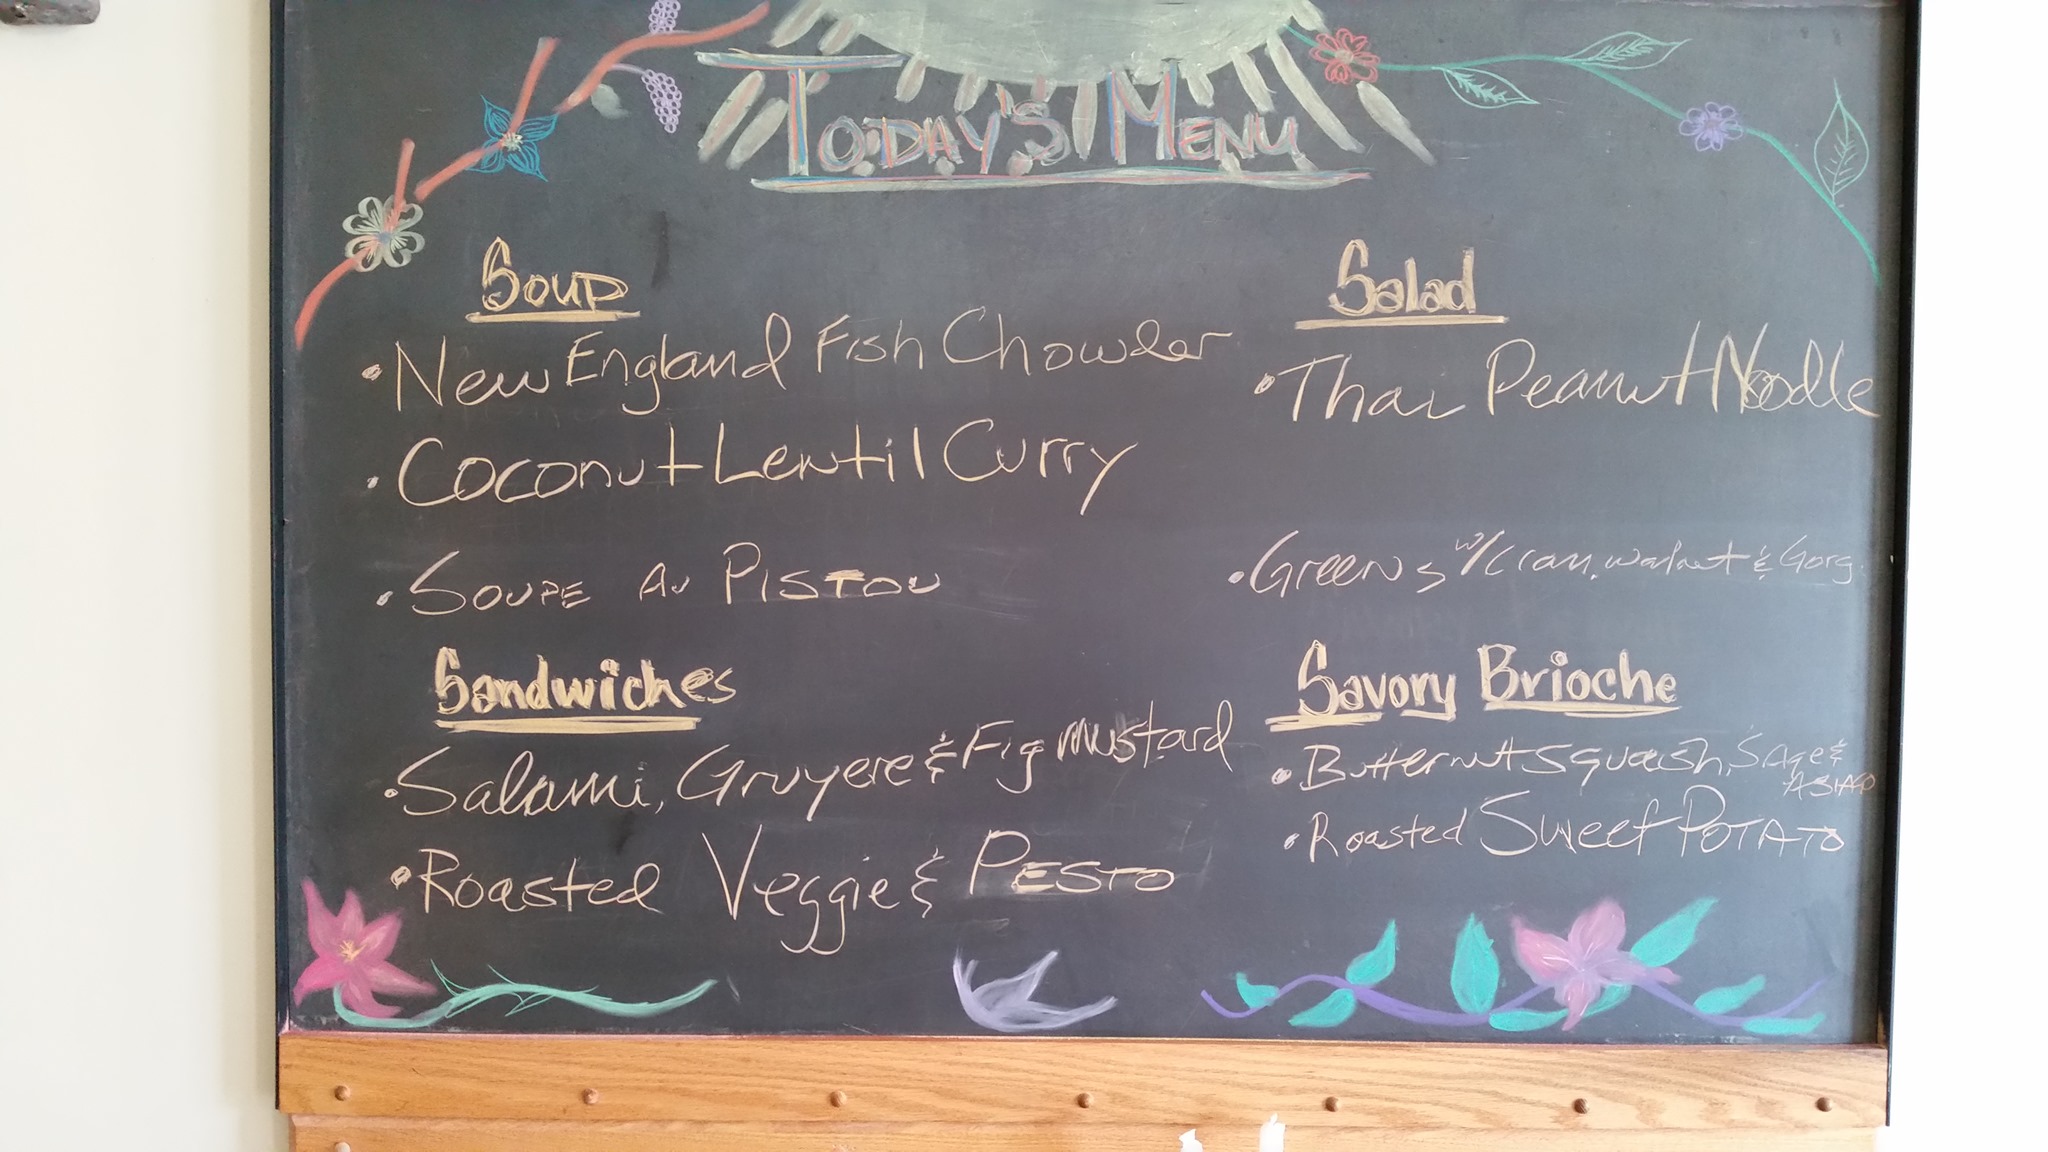 Today's Menu
Soup
• New England Fish Chowder
• Coconut Lentil Curry
• Soupe Au Pistou
Salad
• Thai Peanut Noodle
• Greens w/ cran, walnut & Gorg.
Sandwiches
• Salami, Gruyere & Fig mustard
• Roasted Veggie & Pesto
Savory Brioche
• Butternut Squash, Sage &
ASIAGO
• Roasted Sweet Potato